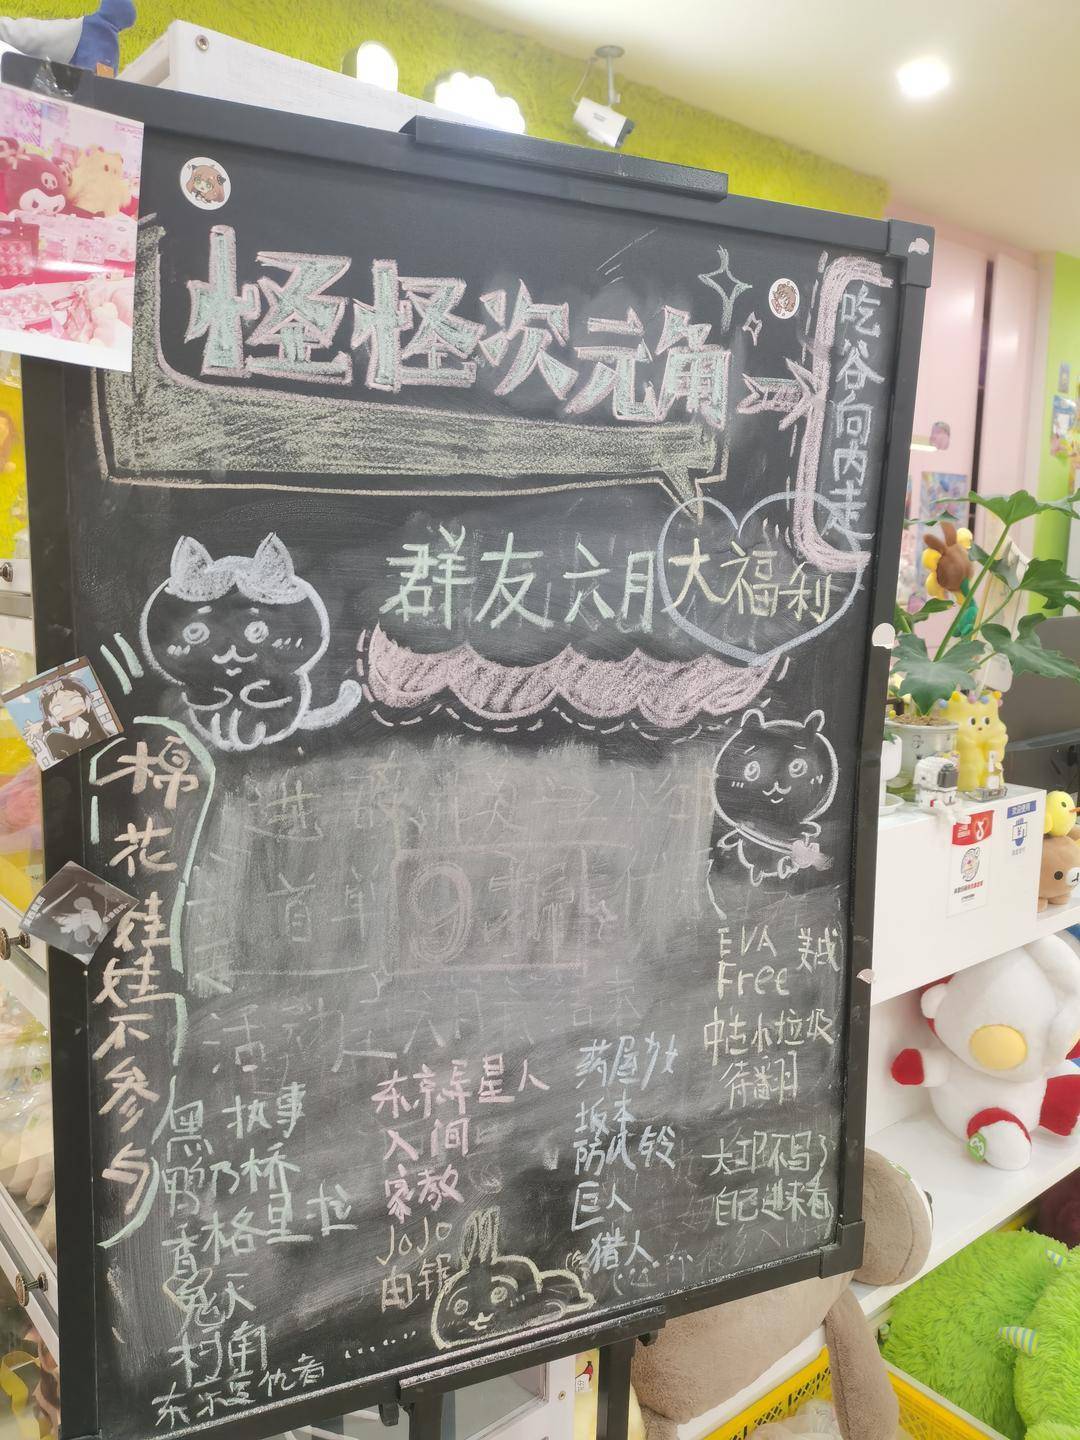 怪怪次元角
吃谷向内走
群友六月大福利
棉花娃娃不参与
9折
活动
黑执事
鸭乃桥
香格里拉
鬼灭
柯南
东京复仇者
东京弹星人
入间
家教
JoJo
由银
......
药屋少女
坂本
防风铃
巨人
猎人...
EVA
Free
中古小垃圾
待翻
大耶不写了
自己进来看